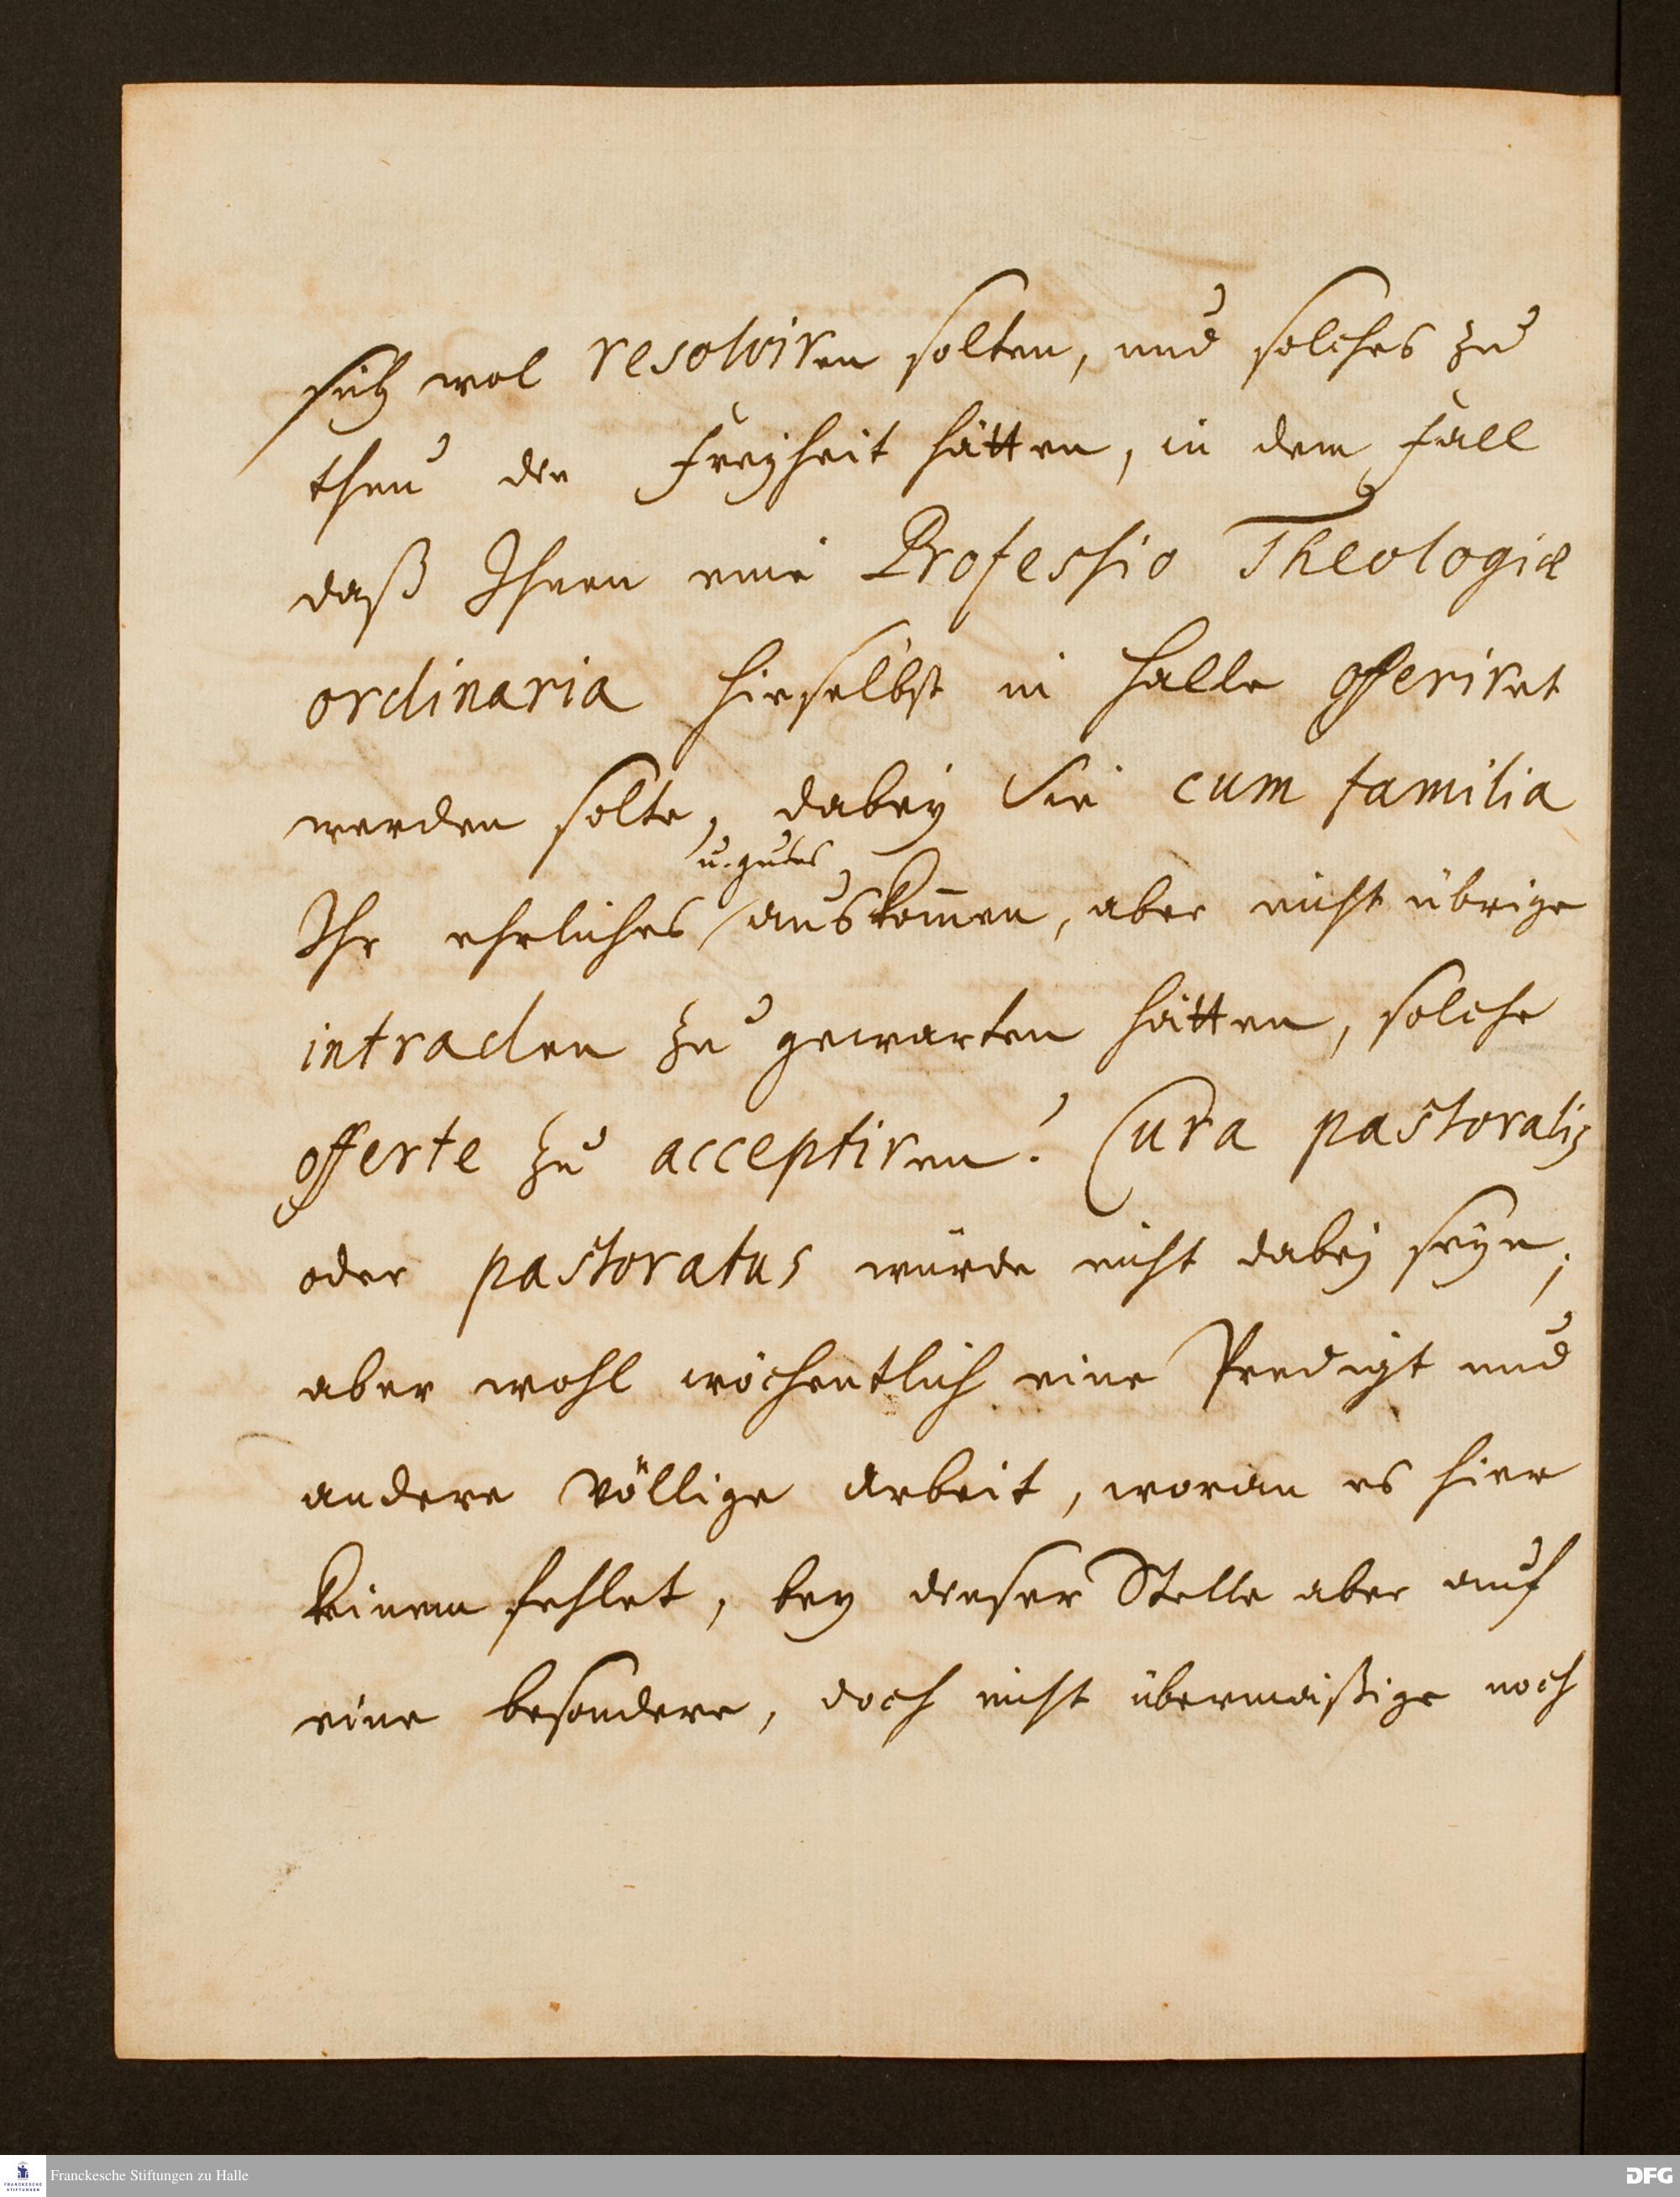 sich wol resolviren solten, und solches zu
thun die Freyheit hätten, in dem Fall
daß Ihnen eine Professio Theologiæ
ordinaria hieselbst in Halle offeriret
werden solte, dabey Sie cum familia
u. gutes
Ihr ehrliches auskom̅en, aber nicht übrige
intraden zu gewarten hätten, solche
offerte zu acceptiren? Cura pastoralis
oder pastoratus würde nicht dabey seyn;
aber wohl wöchentlich eine Predigt und
andere völlige Arbeit, woran es hier
keinem fehlet, bey dieser Stelle aber auf
eine besondere, doch nicht übermäßige noch
Franckesche Stiftungen zu Halle
FRANCKESCHE
STIFTUNGEN
DFG